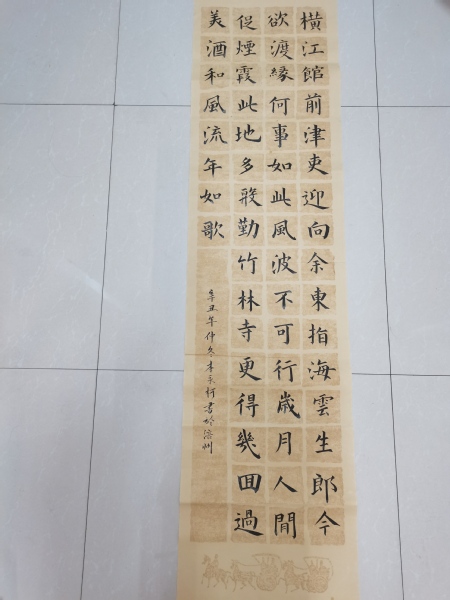 橫江館前津吏迎向余東指海雲生郎今
欲渡緣何事如此風波不可行歲月人間
促煙霞此地多殷勤竹林寺更得幾回過
美酒和風流年如歌
辛丑年仲冬李永書於州